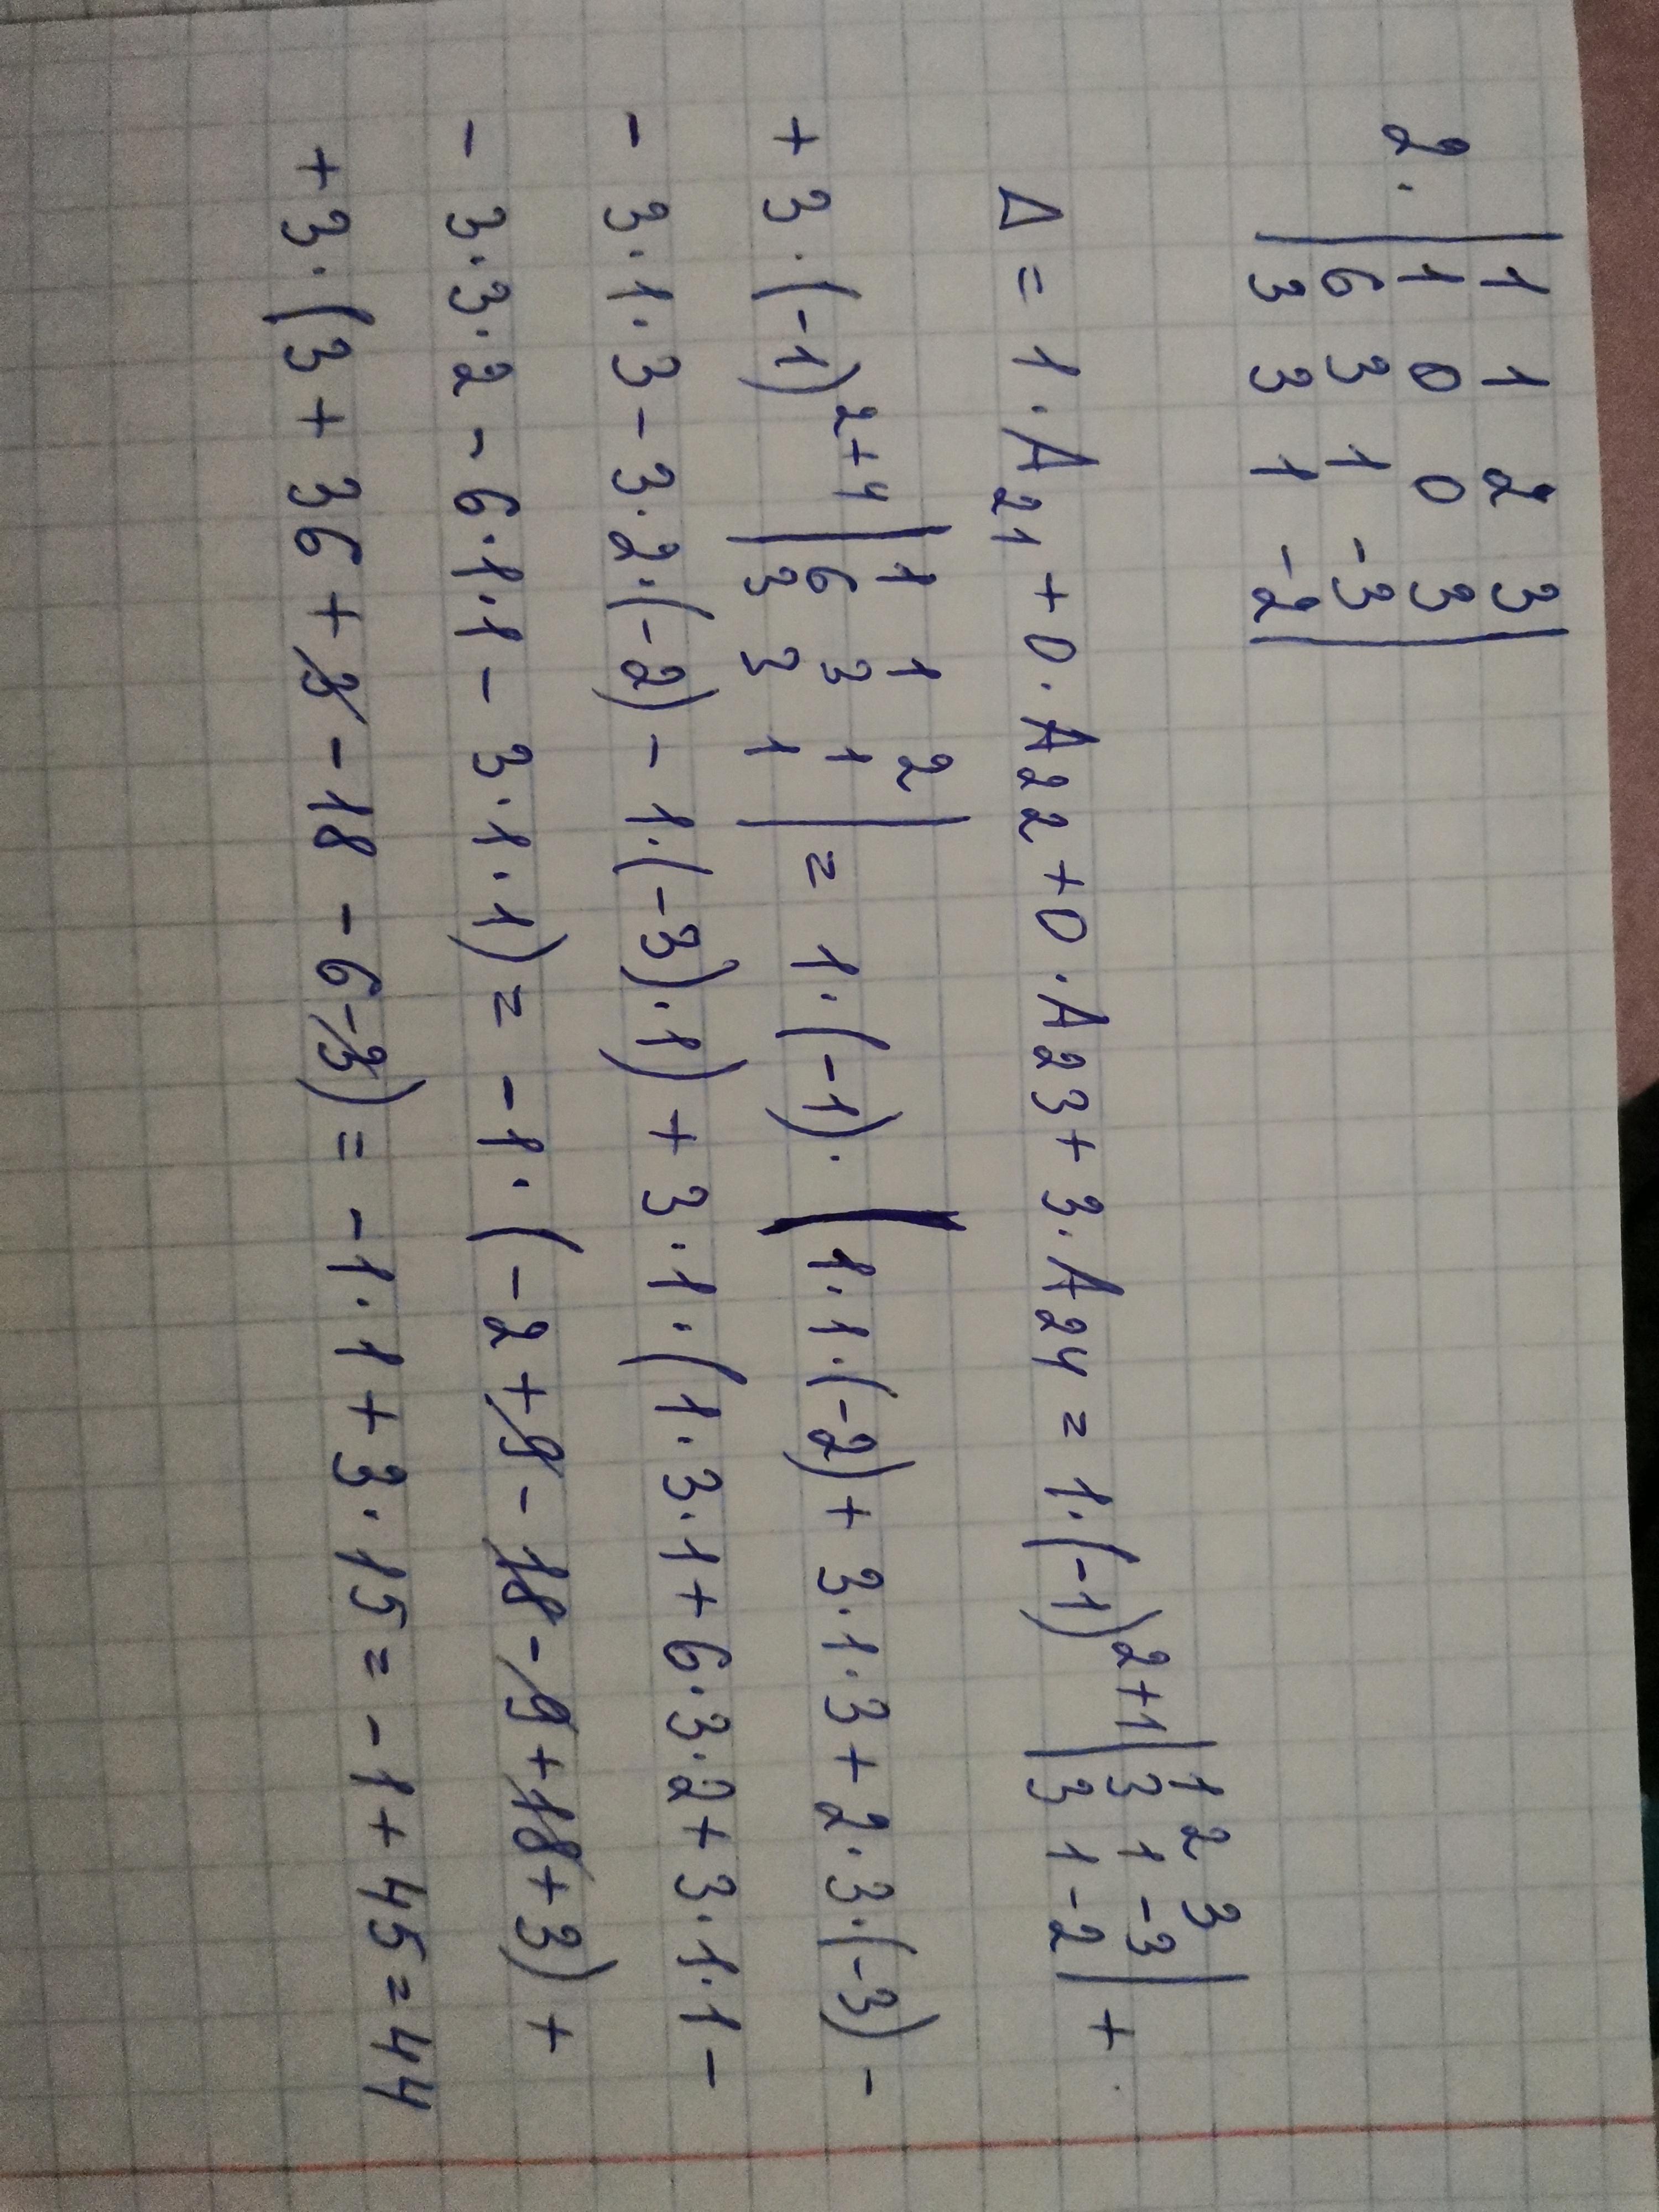 2. | 1 1 2 3 |
| 1 0 0 3 |
| 6 3 1 -3 |
| 3 3 1 -2 |
Δ = 1 · A21 + 0 · A22 + 0 · A23 + 3 · A24 = 1·(-1)^2+1 | 1 2 3 | 3 1 -3 | 3 1 -2 | +
+ 3 · (-1)^2+4 | 1 1 2 | 6 3 1 | 3 3 1 | = 1·(-1)· (1·1·(-2) + 3·1·3 + 2·3·(-3) -
- 3·1·3 - 3·2·(-2) - 1·(-3)·1) + 3·1·(1·3·1 + 6·3·2 + 3·1·1 -
- 3·3·2 - 6·1·1 - 3·1·1) = -1·(-2 + 9 - 18 - 9 + 18 + 3) +
+ 3·(3 + 36 + 3 - 18 - 6 - 3) = -1·1 + 3·15 = -1 + 45 = 44